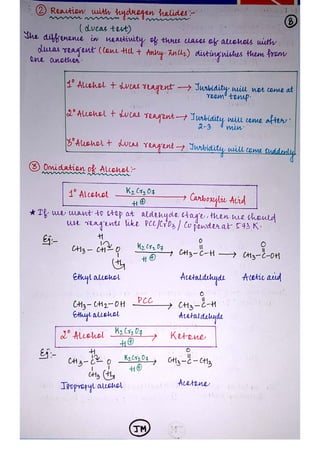 ② Reaction with hydrogen halides:-
(Lucas test)
Ⓑ
The difference in reactivity of three classes of alcohols with
Lucas reagent (Conc HCl + Anhy. ZnCl₂) distinguishes them from
one another.
1° Alcohol + Lucas reagent → Turbidity will not come at
room temp.
2° Alcohol + Lucas reagent → Turbidity will come after
2-3 min
3° Alcohol + Lucas reagent → Turbidity will come Suddenly
③ Oxidation of Alcohol:-
1° Alcohol K₂Cr₂O₇ / H⊕ → Carboxylic Acid
★ If we want to stop at aldehyde stage, then we should
use reagents like PCC/CrO₃ / Cu powder at 573 K.
Eg:-
H
CH₃-CH-O K₂Cr₂O₇ / H⊕ → CH₃-C-H → CH₃-C-OH
H O O
Ethyl alcohol Acetaldehyde Acetic acid
CH₃-CH₂-OH PCC → CH₃-C-H
O
Ethyl alcohol Acetaldehyde
2° Alcohol K₂Cr₂O₇ / H⊕ → Ketone
Eg:-
H
CH₃-C-O K₂Cr₂O₇ / H⊕ → CH₃-C-CH₃
CH₃ H O
Isopropyl alcohol Acetone
JM